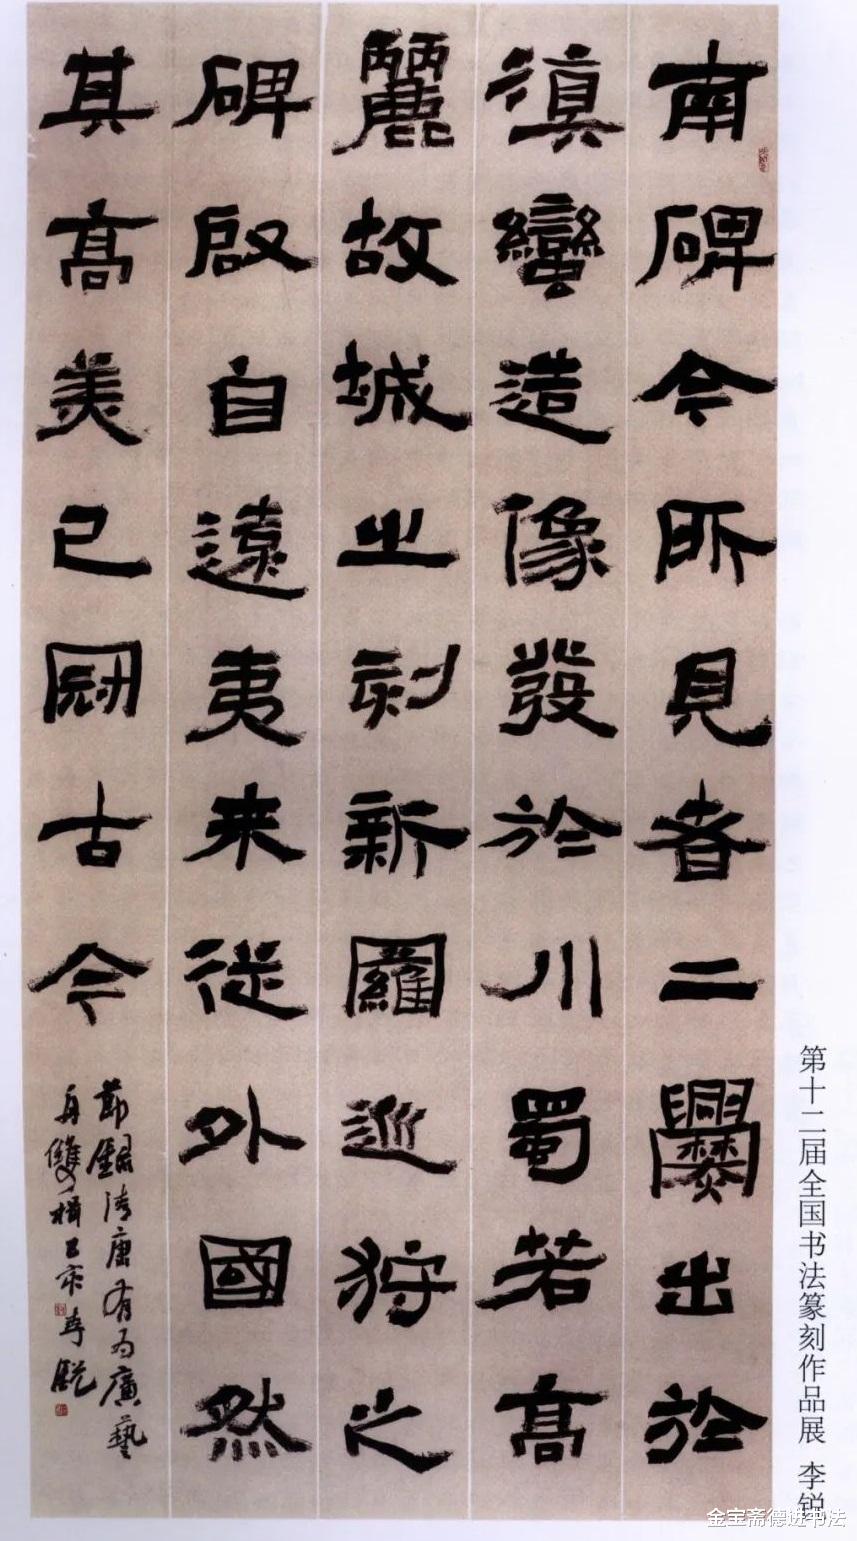 南碑今所見者二爨出於
滇蠻造像發於川蜀若高
麗故城之刻新羅巡狩之
碑啟自遠夷来從外國然
其高美已冠古今
節録清康有为廣藝
舟雙楫己亥李銳
第十二届全国书法篆刻作品展 李锐
金宝斋德进书法